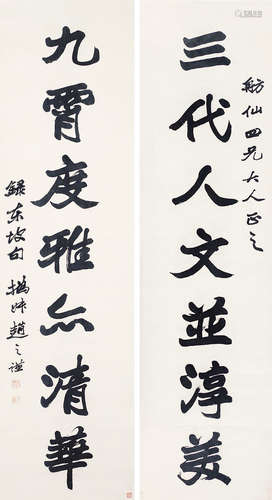 三代人文並淳美
舫仙四兄大人正之
九霄度雅亦清華
錄东坡句 撝叔趙之谦